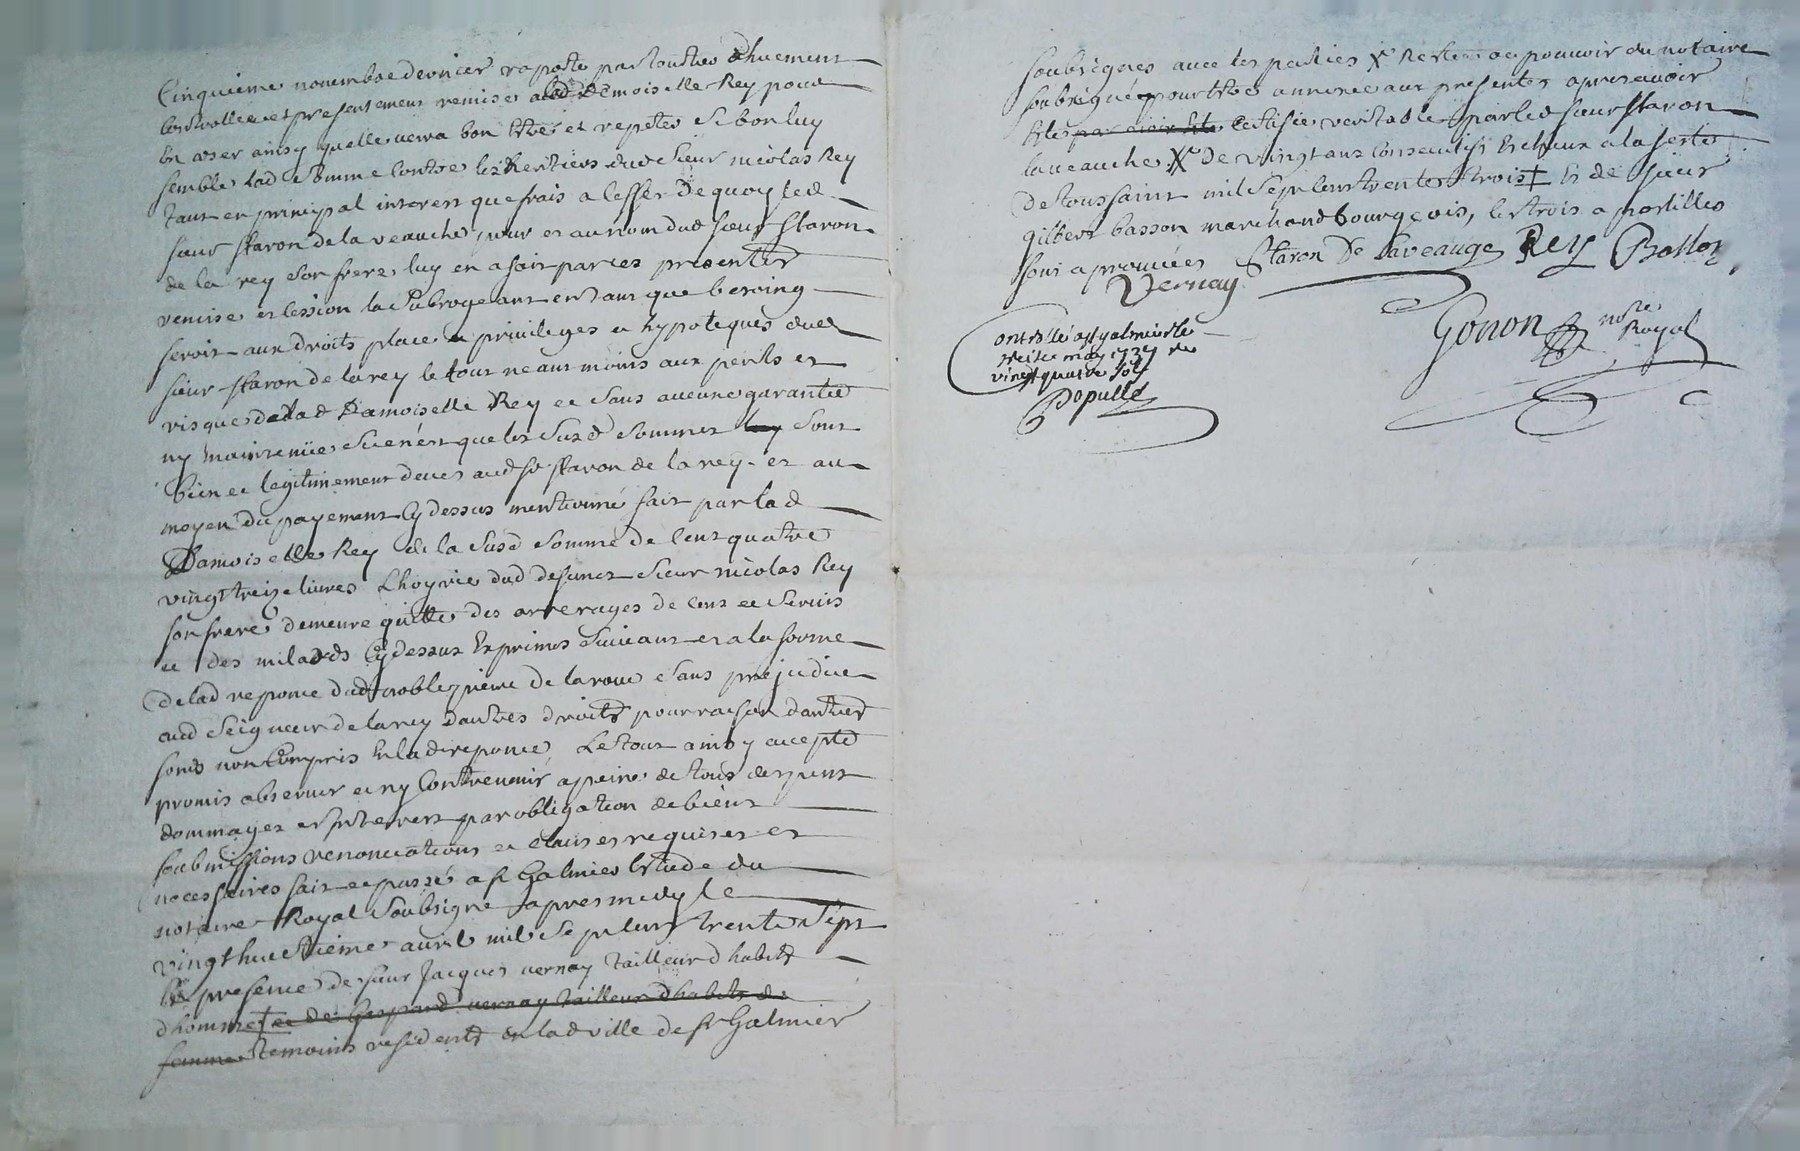 Cinquieme novembre dernier raporté par Coustres dhuement
controllée et presentement remise a lad Demoiselle Rey pour
en user ainsy quelle verra bon être et repeter Si bon luy
semble lad somme contre les heritiers dud Sieur nicolas Rey
tant en principal interest que frais a leffet Dequoy led
sieur staron de la veauche, pour et au nom dud sieur staron
de la rey son frere luy en a fait par ces presentes
remise et cession la Subrogeant en tant que besoing
seroit aux droits place privileges et hypoteques dud
sieur staron de larey le tout neautmoins aux perils et
risques de lad Damoiselle Rey et Sans aucune garantie
ny maintenüe Si cenest que les Susd sommes sont
bien et legitimement deües aud sr staron de larey. et au
moyen du payement Cy dessus mentionné fait par lad
Damoiselle Rey de la Susd Somme de Cent quatre
vingt treize livres Lhoyrie dud defunct Sieur nicolas Rey
son frere demeure quitte des arrerages de cens et Servis
et des milods Cy dessus Exprimés Suivant et a la forme
de lad reponce dud terrier de la roue Sans prejudice
aud Seigneur de larey dautres droits pour raison dautres
fonds non Compris En lad reponce, Le tout ainsy accepté
promis observer et ny Contrevenir a peine de tous despens
dommages et interests par obligation de biens
soubmissions renonciations et clauses requises et
necessaires fait et passé a st Galmier Etude du
notaire Royal Soubsigné apres midy le
vingthuictieme avril mil Sept cents trente Sept
En presence de sieur Jacques vernay tailleur dhabits
dhomme et de Gaspard vernay tailleur dhabits de
femme temoins residents en lad ville de st Galmier
soubsignés avec les parties X Restée au pouvoir du notaire
soubsigné pour être annexée aux presentes apres avoir
été par avoir été Certifiée veritable par led sieur Staron
laveauche X de vingt ans consecutifs Echeux a la feste
de toussaint mil Sept Cents trente trois ‡ Et de sieur
gilbert basson marchand bourgeois, les trois apostilles
sont aprouvées Staron De Laveauge Rey Basson
Vernay
Gonon nore Royal
Controllé a st galmier le
treize may 1737 Reçu
vingt quatre sols
Populle